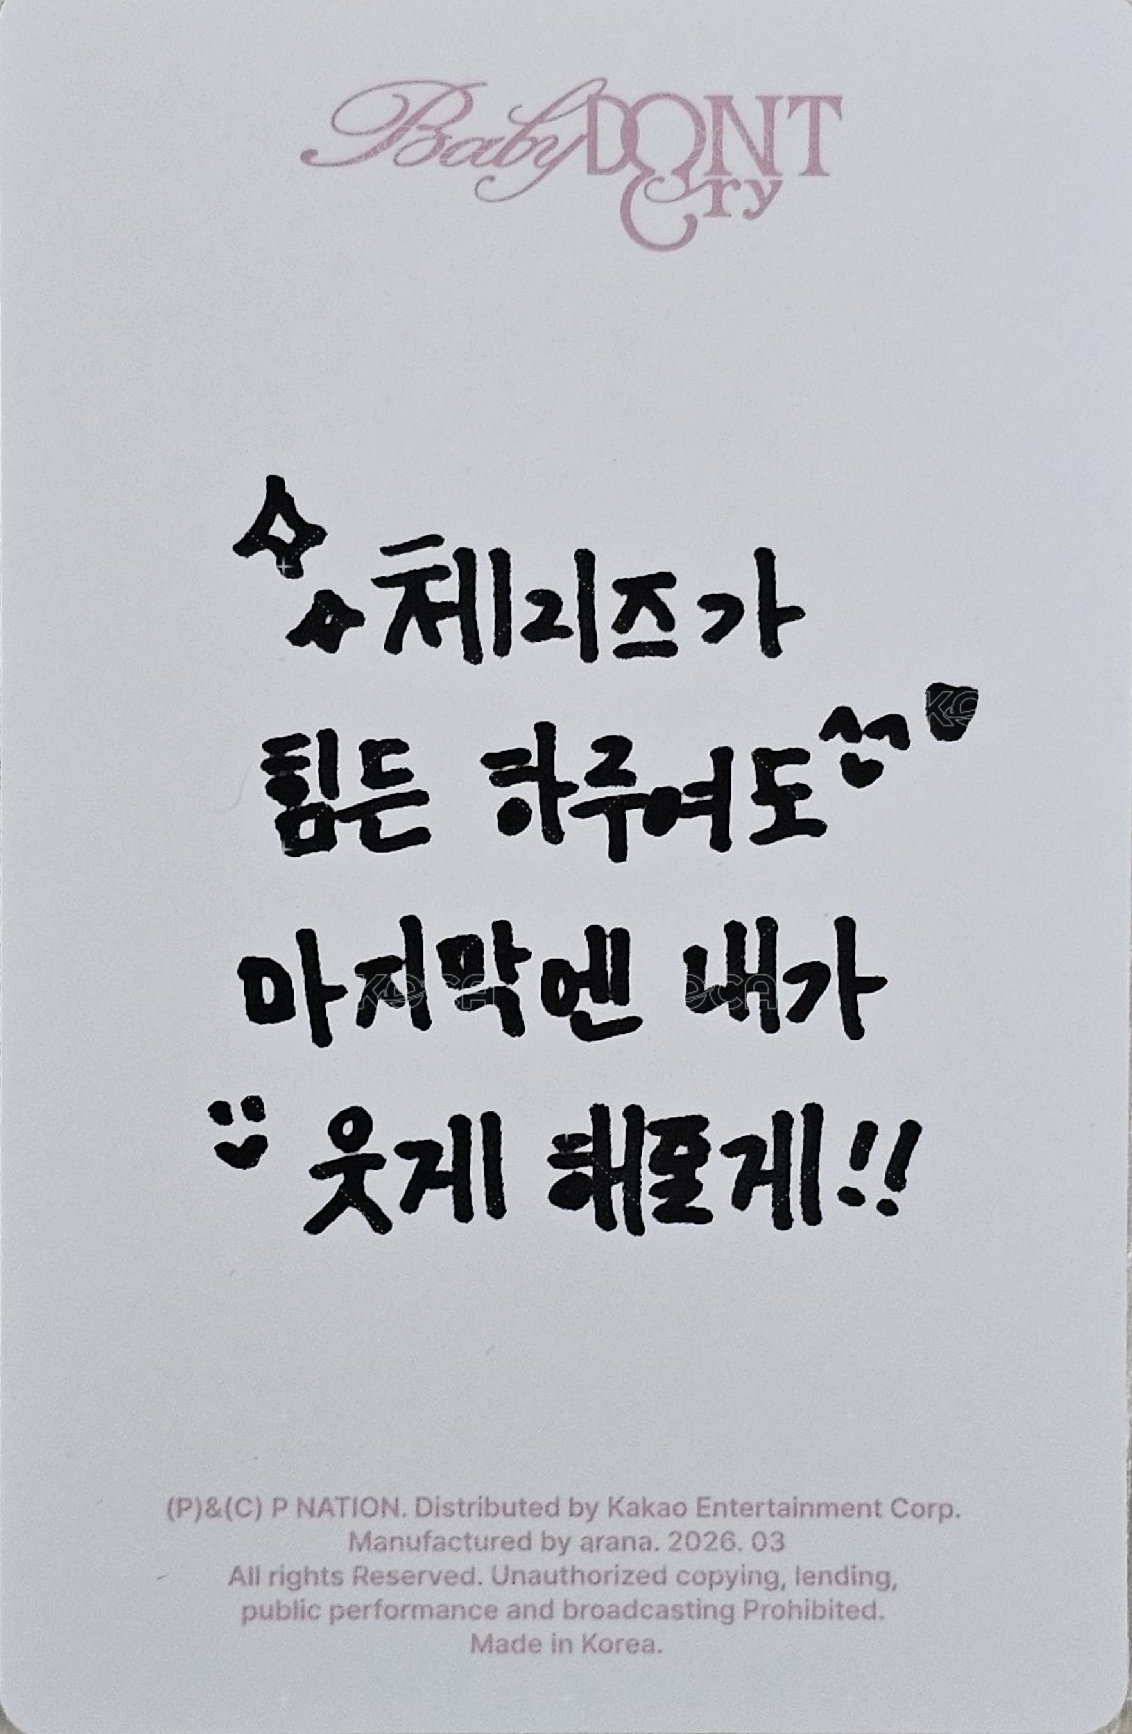 Baby DONT Cry
체리즈가
힘든 하루여도
마지막엔 내가
웃게 해줄게!!
(P)&(C) P NATION. Distributed by Kakao Entertainment Corp.
Manufactured by arana. 2026. 03
All rights Reserved. Unauthorized copying, lending,
public performance and broadcasting Prohibited.
Made in Korea.